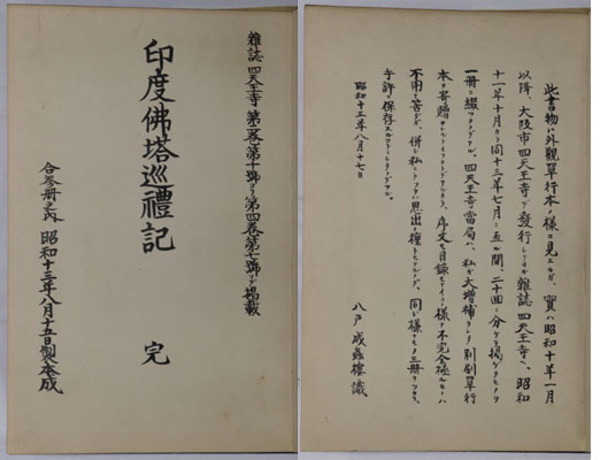 雜誌 四天王寺 第二巻第十號ヨリ第四巻第七號マデ掲載
印度佛塔巡禮記 完
合参冊之内 昭和十三年八月十五日製本成
此書物ハ外觀單行本ノ様ニ見エルガ、實ハ昭和十年一月
以降、大阪市四天王寺デ發行シテヰル雜誌四天王寺ヘ、昭和
十一年十月カラ同十三年七月ニ亙ル間、二十回ニ分ケテ掲ゲタモノヲ
一冊ニ綴ツタノデアル。四天王寺當局ハ、私ガ大増補ヲシタ別刷單行
本ヲ寄贈 序文モ目録モナイコノ様ナ不完全極ルモノハ
不用ノ筈ダガ、併シ私トシテハ思出ノ種トモナルノデ、同ジ様ナモノ三冊ヲツクリ、
手許ニ保存スルコトニシタノデアル。
昭和十三年八月十七日
八戸成蟲樓識